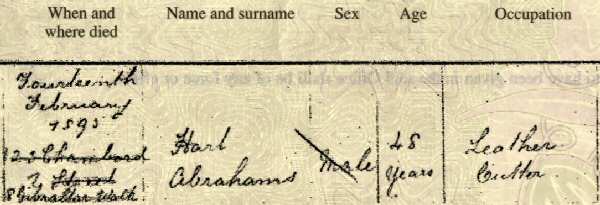 When and
where died
Name and surname
Sex
Age
Occupation
to have been given in the said Office shall be of any force or effect
Fourteenth
February
1895
Hart
Abrahams
Male
48
Years
Leather
Cutter
8 Gibraltar Walk